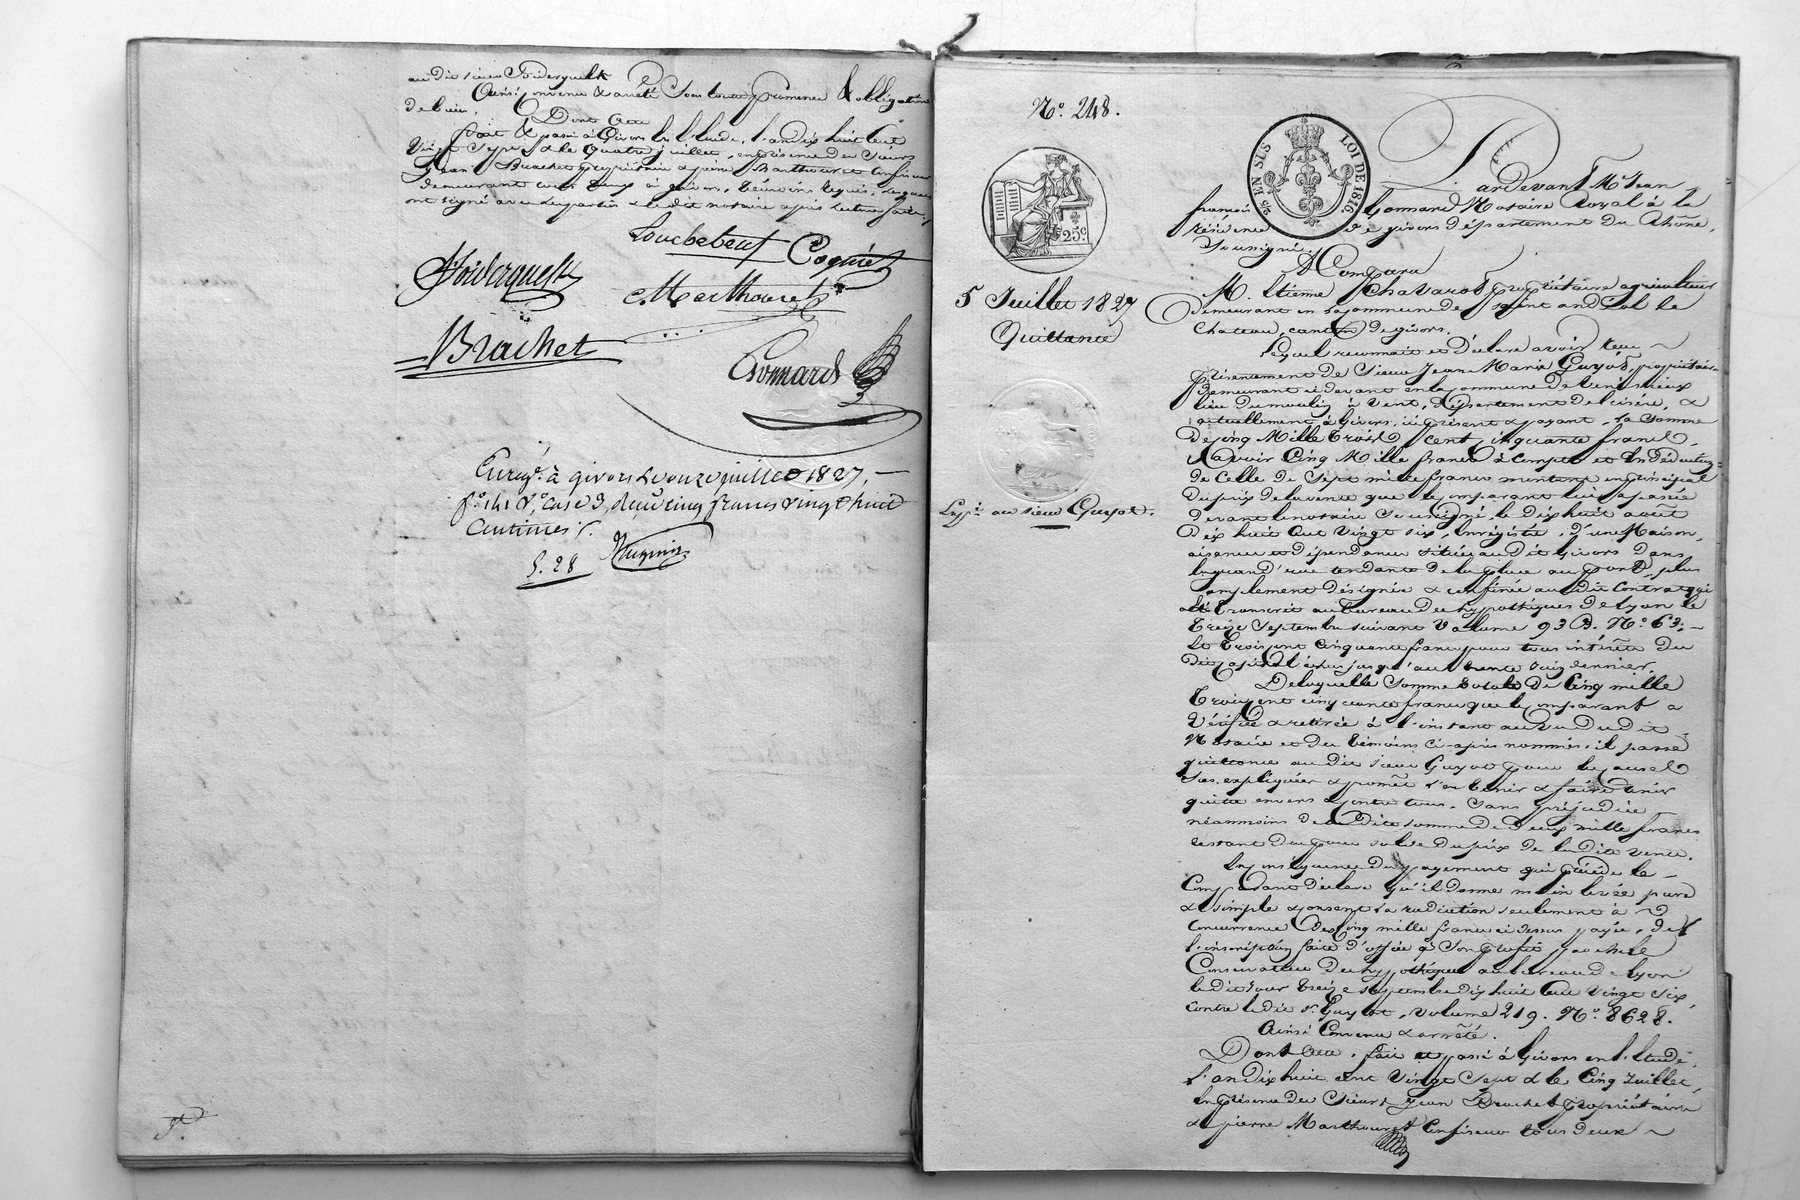 au dit sieur Foiderquelt
Ainsi convenu & arrêté sous toutes promesses & obligations
de biens.
Dont acte
Fait & passé à Givors en l'étude, l'an dix huit cent
vingt sept & le quatre juillet, en présence des sieurs
Jean Brachet propriétaire & pierre Marthouret confiseur
demeurant tous deux à givors, témoins requis, lesquels
ont signé avec les parties & le dit notaire après lecture faite
Louchebeuf Coquet
Marthouret
Brachet
Gonnard
Enreg.é à givors le onze juillet 1827,
f.o 141 r.o case 3, reçu cinq francs vingt huit
centimes
5. 28
N.o 248.
25 EN SUS LOI DE 1816.
25.c
5 Juillet 1827
Quittance
Exp.on au sieur Guyot.
Pardevant M.e Jean
françois Gonnard Notaire Royal à la
résidence de givors département du Rhône,
Soussigné.
A Comparu
M. Etienne Chavarot propriétaire agriculteur
demeurant en la commune de saint andéol le
chateau, canton de givors.
Lequel reconnait et déclare avoir reçu
présentement de Sieur Jean Marie Guyot, propriétaire
demeurant ci devant en la commune de venissieux
lieu du moulin à vent, département de l'isère, &
actuellement à Givors, ici présent & payant, la somme
de cinq Mille trois cent cinquante francs.
Savoir Cinq Mille francs à compte et en déduction
de celle de sept mille francs montant en principal
du prix de la vente que le comparant lui a passée
devant le notaire soussigné le dix huit août
dix huit cent vingt six, enrégistré, d'une Maison,
aisances et dépendances située au dit Givors dans
la grand'rue tendante de la place au pont, plus
amplement désignée & confinée au dit contrat qui
a été transcrit au bureau des hypothèques de Lyon le
treize septembre suivant volume 93 B. N.o 63;
Et trois cent cinquante francs pour tous intérêts du
dit capital échus jusqu'au trente juin dernier.
De laquelle somme totale de Cinq mille
trois cent cinquante francs que le comparant a
vérifiée & retirée à l'instant au vu du dit
Notaire et des témoins ci-après nommés, il passe
quittance au dit sieur Guyot pour les causes
sus expliquées & promet l'en tenir & faire tenir
quitte envers & contre tous. sans préjudice
néanmoins de la dite somme de deux mille francs
restant due pour solde du prix de la dite vente.
En conséquence du payement qui précède le
Comparant déclare qu'il donne main levée pure
& simple & consent la radiation seulement à
concurrence des Cinq mille francs ci dessus payés, de
l'inscription faite d'office à son profit par M. le
Conservateur des hypothèques au bureau de Lyon
le dit jour treize septembre dix huit cent vingt six,
contre le dit s.r Guyot, volume 219. N.o 8628.
Ainsi Convenu & arrêté.
Dont acte, fait et passé à Givors en l'étude
l'an dix huit cent vingt sept & le Cinq Juillet,
en présence des sieurs Jean Brachet propriétaire
& pierre Marthouret confiseur tous deux